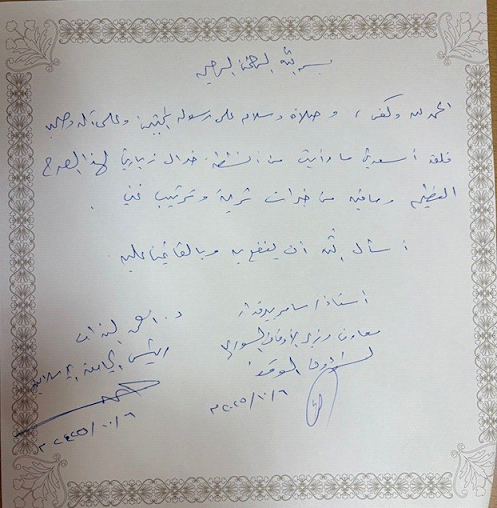 بسم الله الرحمن الرحيم
الحمد لله وكفى، وصلاة وسلام على رسوله المجتبى وعلى آله وصحبه
فلقد أسعدني ما رأيت من أنشطة خلال زيارتي لهذا الصرح
العظيم وما فيه من خبرات ثرية وترتيب فني.
أسأل الله أن ينفع به وبالقائمين عليه.
أستاذ/ سامر بيرقدار
معاون وزير الأوقاف السوري
لشؤون الوقف
٢٠٢٥/١٠/٦ م
د.
رئيس الجامعة الإسلامية
٢٠٢٥/١٠/٦ م